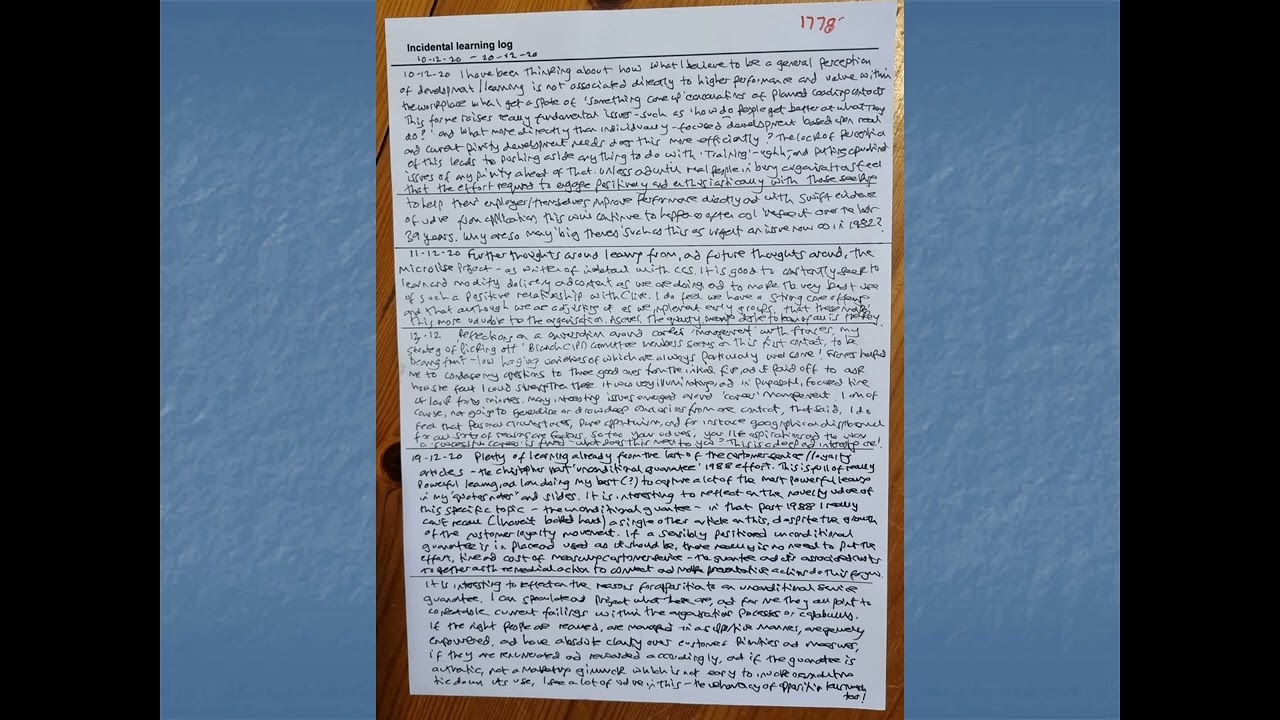 1778
Incidental learning log
10-12-20 - 20-12-20
10-12-20 I have been thinking about how what I believe to be a general perception
of development/learning is not associated directly to higher performance and value within
the workplace when I get a spate of 'something came up' cancellations of planned coaching contacts
This for me raises really fundamental issues - such as 'how do people get better at what they
do?' and what more directly than individually-focused development based upon real
and current priority development needs does this more efficiently? The lack of perception
of this leads to pushing aside anything to do with 'Training' - ughh, and putting
issues of any priority ahead of that. Unless and until real people in busy organisations feel
that the effort required to engage positively and enthusiastically with those seeking
to help their employer/themselves improve performance directly and with swift evidence
of value from application, this will continue to happen as often as I over the last
39 years. Why are so many 'big themes' such as this as urgent an issue now as in 1982?
11-12-20 Further thoughts around learning from, and future thoughts around, the
Microlise Project - as written of in detail with CCS. It is good to constantly seek to
learn and modify delivery and content as we are doing and to make the very best use
of such a positive relationship with Clive. I do feel we have a strong core offering
and that although we are adjusting it as we implement early groups, that these make
this more valuable to the organisation. As ever, the is the key.
12-12 Reflections on a conversation around career 'management' with Frances, my
strategy of picking off Branch CIPD Committee members seems on this first contact, to be
fruit - low hanging varieties of which are always particularly welcome! Frances helped
me to condense my questions to three good ones from the initial five, and it paid off to ask
how she felt I could strengthen these. It was very illuminating and in purposeful, focused time
of about forty minutes. Many interesting issues emerged around 'career' management. I am of
course, not going to generalise or draw deep conclusions from one contact, that said, I do
feel that personal circumstances, pure opportunism, and for instance geographical displacement
for all sorts of reasons are factors. So too your values, your life aspirations and the way
a 'successful career' is - what does this mean to you? This is a deep and interesting one!
19-12-20 Plenty of learning already from the last of the customer service/loyalty
articles - the Christopher Hart 'unconditional guarantee' 1988 effort. This is full of really
powerful learning, and I am doing my best (?) to capture a lot of the most powerful learning
in my 'quotes notes' and slides. It is interesting to reflect on the novelty value of
this specific topic - the unconditional guarantee - in that past 1988 I really
can't recall (I haven't looked hard) a single other article on this, despite the growth
of the customer loyalty movement. If a sensibly positioned unconditional
guarantee is in place and used as it should be, there really is no need to put the
effort, time and cost of measuring customer service - the guarantee and its associated costs
together with remedial action to correct and make preventative actions do this for you.
It is interesting to reflect on the reasons for opposition to an unconditional service
guarantee. I can speculate and project what these are, and for me they all point to
current failings within the organisation's processes or capability.
If the right people are recruited, are managed in an effective manner, are genuinely
empowered, and have absolute clarity over customer priorities and measures,
if they are remunerated and rewarded accordingly, and if the guarantee is
authentic, not a marketing gimmick which is not easy to invoke or
tie down its use, I see a lot of value in this - the of opposition
too!